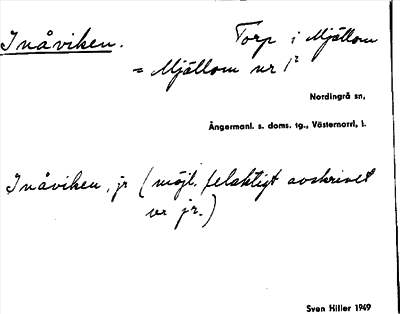 Inåviken. Torp i Mjällom
= Mjällom nr 1²
Nordingrå sn,
Ångermanl. s. doms. tg., Västernorrl, l.
Inåviken, jr (möjl. felaktigt avskrivet
ur jr.)
Sven Hiller 1949